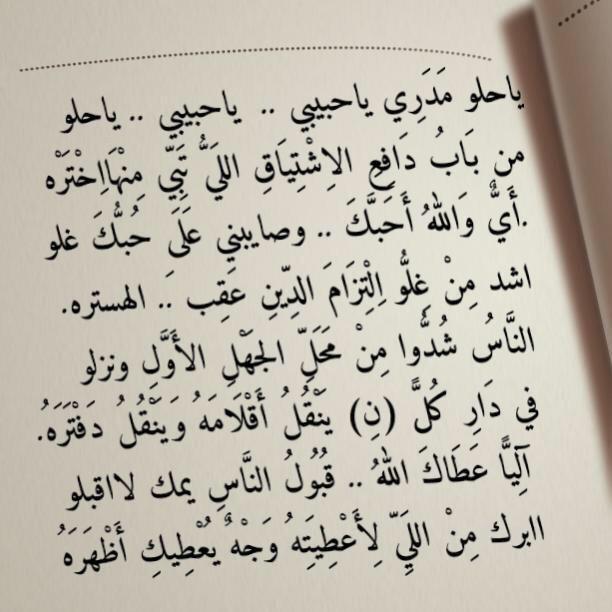 ياحلو مَدَرِي ياحبيبي .. ياحبيبي .. ياحلو
من بَابُ دَافِعِ الاِشْتِيَاقِ اللَيُّ تَبِيِّ مِنْهَااِخْتَرْه
.أَيٌّ وَاللهُ أَحَبَّكَ .. وصايبني عَلَىَ حُبُّكَ غلو
اشد مِنْ غِلُّو اِلْتِزَامَ الدِّينِ عَقِب .. الهستره.
النَّاسُ شُدُّوا مِنْ مَحَلِّ الجَهْلِ الأَوَّلِ ونزلو
في دَارِ كُلًّ (نِ) يَنْقُلُ أَقْلَامَهُ وَيَنْقُلُ دَفْتَرَهُ.
آلِيًّا عَطَاكَ اللهُ .. قُبُولُ النَّاسِ يمك لااقبلو
اابرك مِنْ اللَيِّ لِأَعْطِيَتِهُ وَجْهٌ يُعْطِيكِ أَظْهَرَهُ